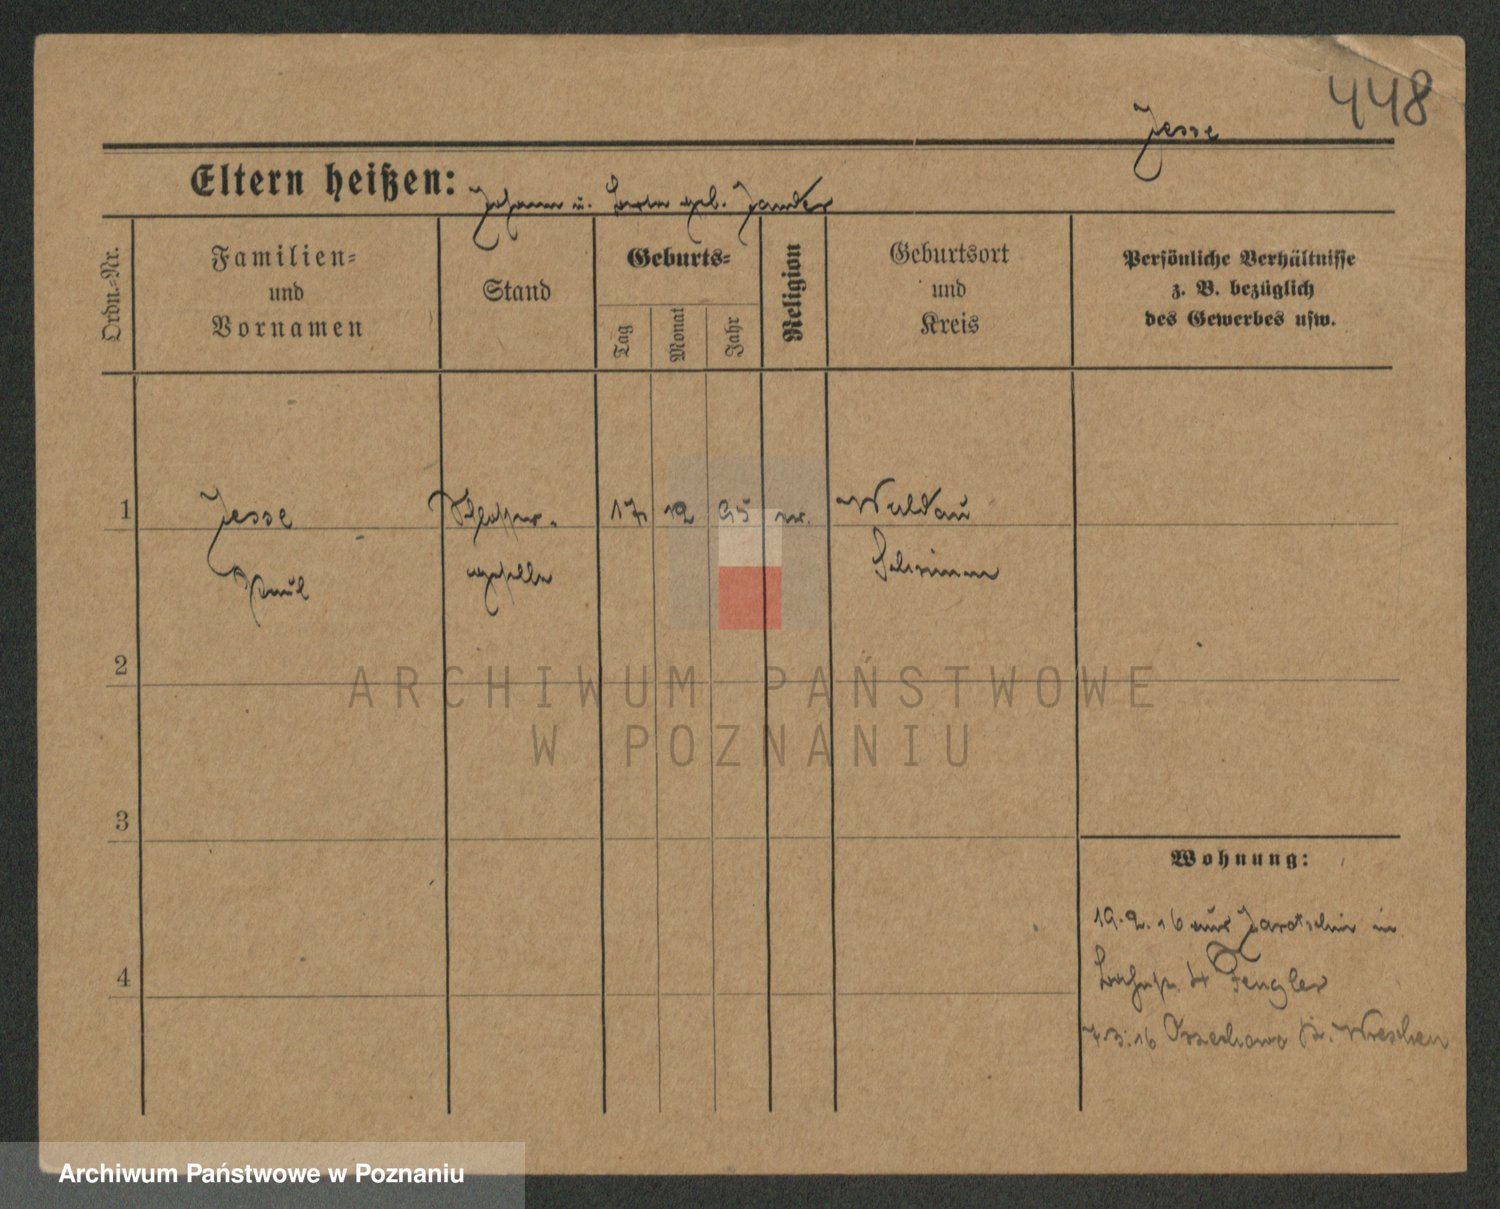 448
Jesse
Eltern heißen: Johann u. geb. Zander
Ordn.-Nr.
Familien-
und
Vornamen
Stand
Geburts-
Tag
Monat
Jahr
Religion
Geburtsort
und
Kreis
Persönliche Verhältnisse
z. B. bezüglich
des Gewerbes usw.
1
Jesse
Paul
geselle
17
12
95
ev.
Waldau
Schrimm
2
3
4
Wohnung:
19.2.16 aus Jarotschin in
4 Fengler
7.3.16 Orzechowo Kr. Wreschen
ARCHIWUM PAŃSTWOWE
W POZNANIU
Archiwum Państwowe w Poznaniu